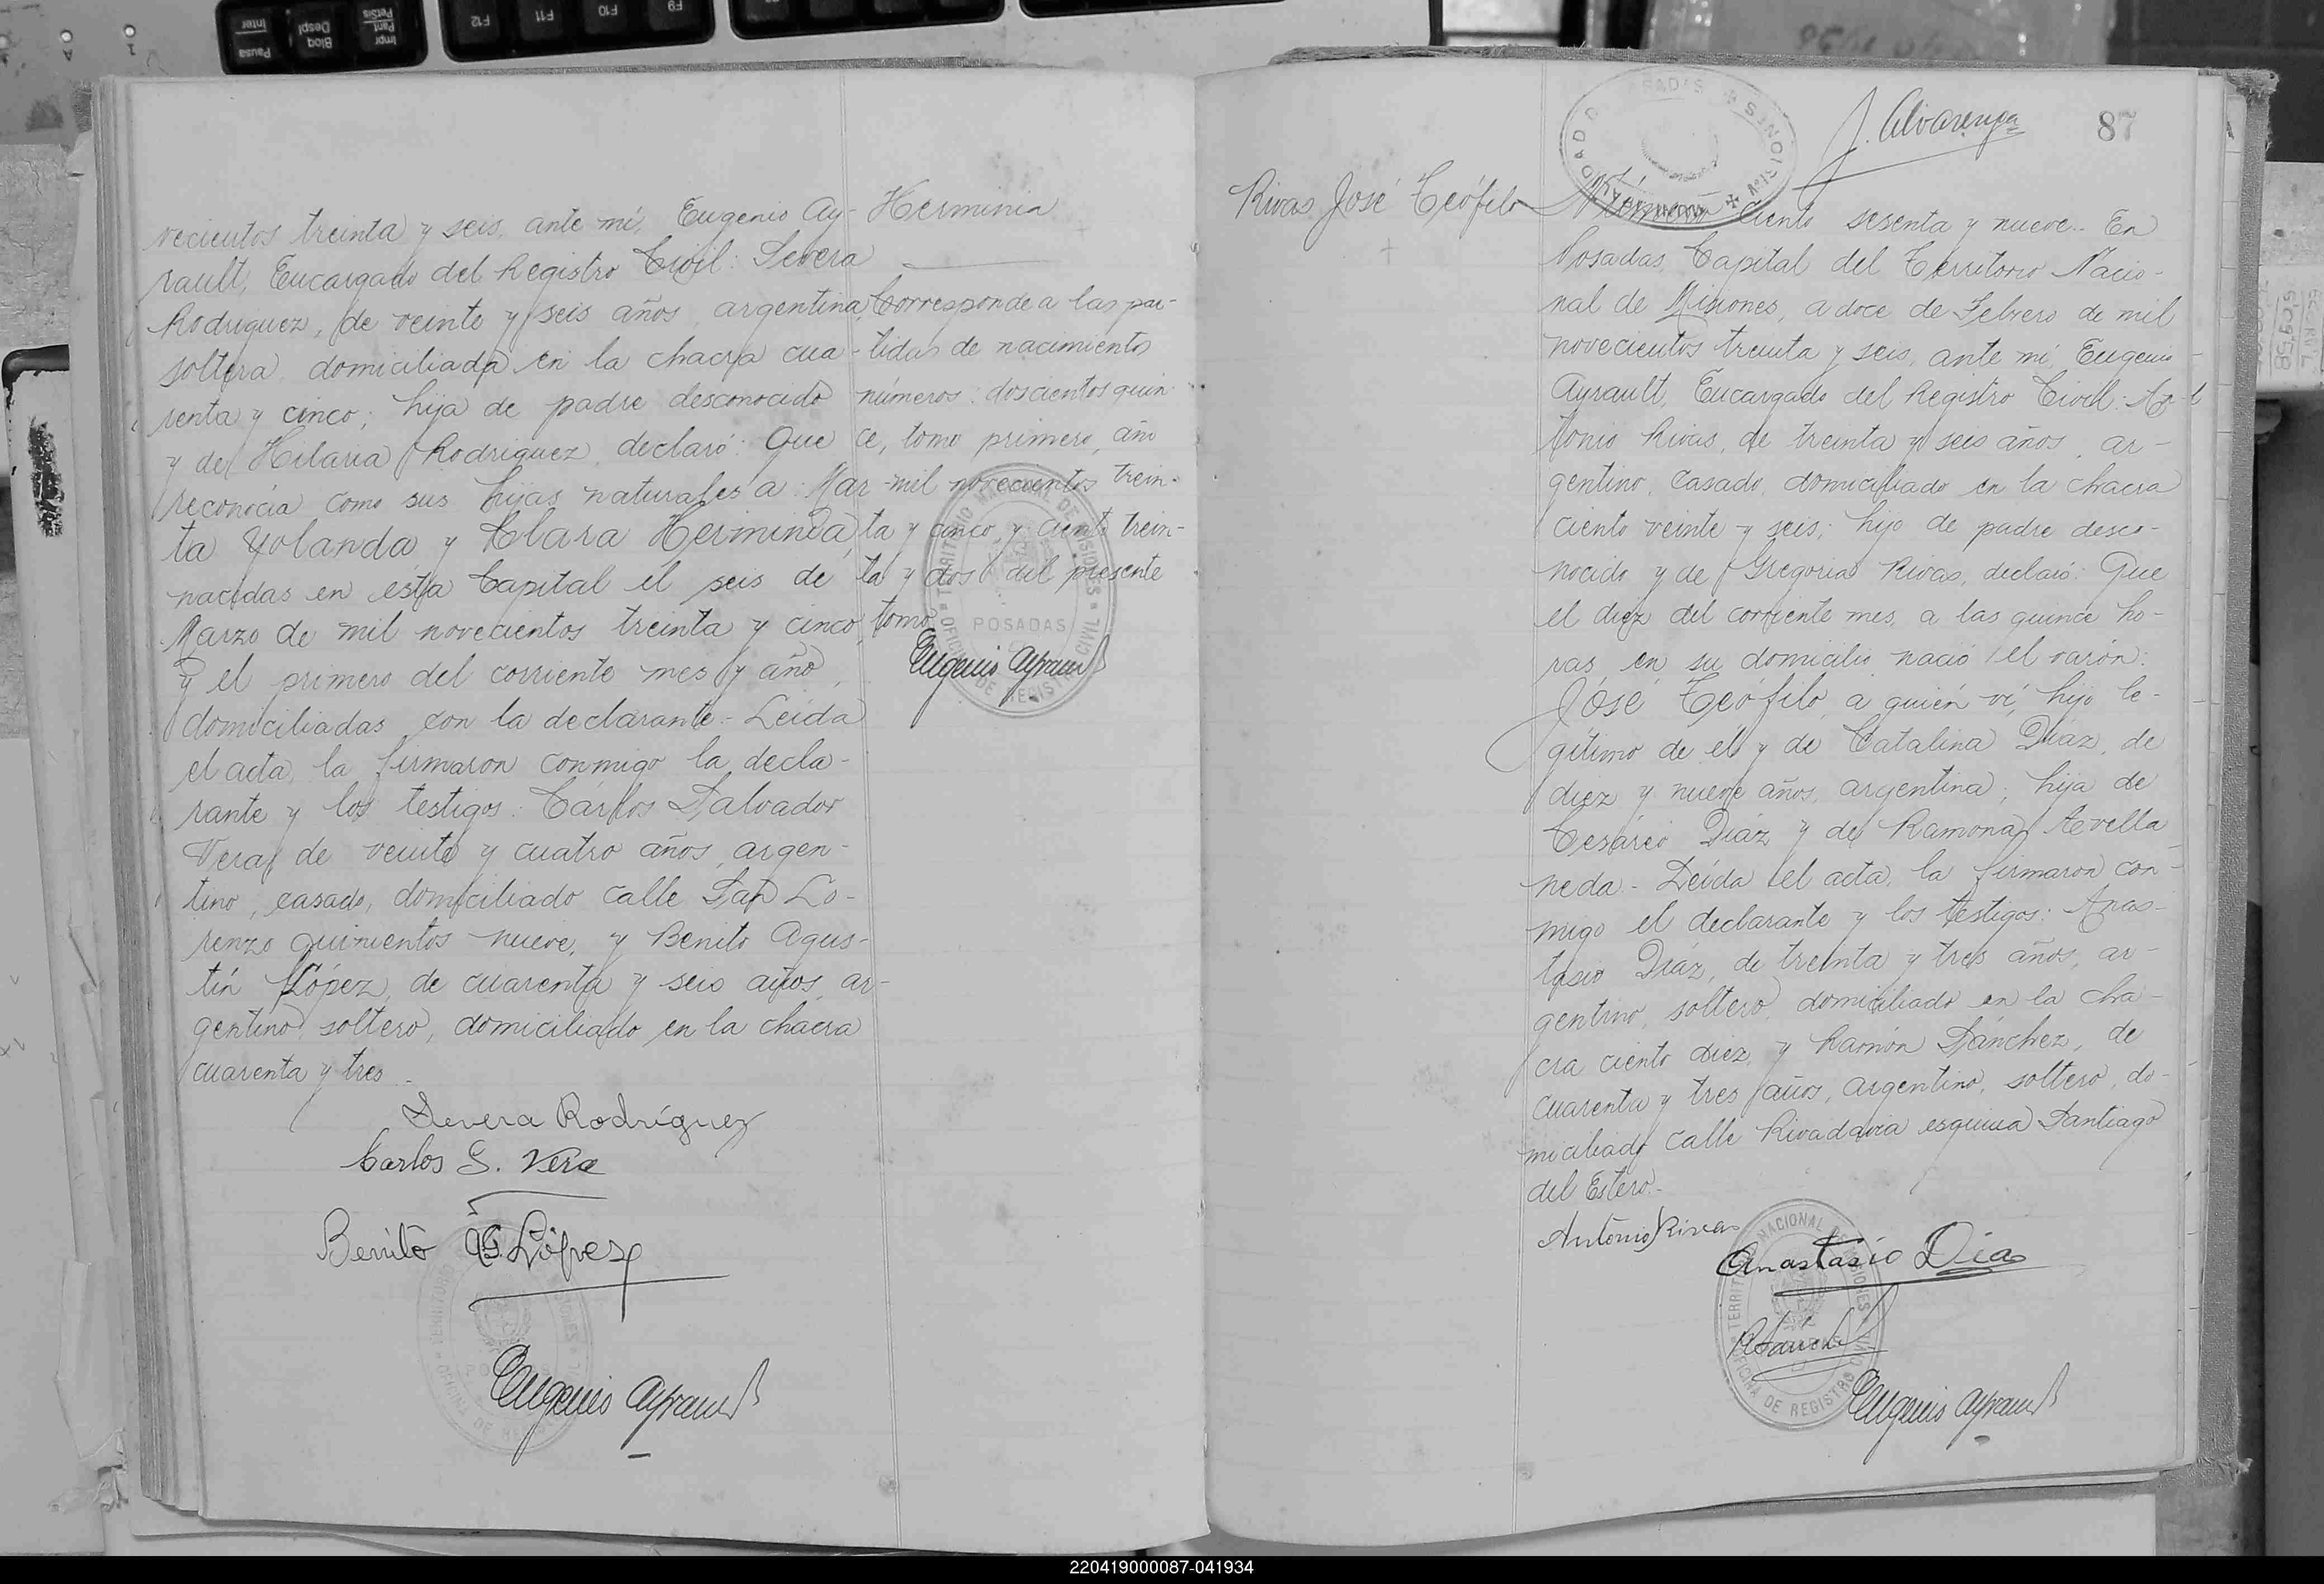 vecientos treinta y seis, ante mí, Eugenio Ay-
rault, Encargado del Registro Civil: Severa
Rodriguez, de veinte y seis años, argentina,
soltera, domiciliada en la chacra cua-
renta y cinco; hija de padre desconocido
y de Hilaria Rodriguez, declaró: Que
reconocía como sus hijas naturales a: Mar-
ta Yolanda y Clara Herminia,
nacidas en ésta Capital el seis de
Marzo de mil novecientos treinta y cinco,
y el primero del corriente mes y año,
domiciliadas con la declarante.- Leída
el acta, la firmaron conmigo la decla-
rante y los testigos: Cárlos Salvador
Vera, de veinte y cuatro años, argen-
tino, casado, domiciliado calle San Lo-
renzo quinientos nueve, y Benito Agus-
tín López, de cuarenta y seis años, ar-
gentino, soltero, domiciliado en la chacra
cuarenta y tres.-
Severa Rodríguez
Carlos S. Vera
Benito A. López
Eugenio Ayrault
Herminia
Corresponde a las par-
tidas de nacimientos
números: doscientos quin-
ce, tomo primero, año
mil novecientos trein-
ta y cinco, y ciento trein-
ta y dos del presente
tomo.
Eugenio Ayrault
TERRITORIO NACIONAL DE MISIONES
POSADAS
OFICINA DE REGISTRO CIVIL
J. Alvarenga
87
Rivas José Teófilo
Número ciento sesenta y nueve.- En
Posadas, Capital del Territorio Nacio-
nal de Misiones, a doce de Febrero de mil
novecientos treinta y seis, ante mí, Eugenio
Ayrault, Encargado del Registro Civil: An-
tonio Rivas, de treinta y seis años, ar-
gentino, casado, domiciliado en la chacra
ciento veinte y seis; hijo de padre desco-
nocido y de Gregoria Rivas, declaró: Que
el diez del corriente mes, a las quince ho-
ras, en su domicilio nació el varón:
José Teófilo, a quién ví, hijo le-
gítimo de él y de Catalina Díaz, de
diez y nueve años, argentina; hija de
Cesáreo Díaz y de Ramona Avella
neda.- Leída el acta, la firmaron con-
migo el declarante y los testigos: Anas-
tasio Díaz, de treinta y tres años, ar-
gentino, soltero, domiciliado en la cha-
cra ciento diez y Ramón Sánchez, de
cuarenta y tres años, argentino, soltero, do-
miciliado calle Rivadavia esquina Santiago
del Estero.-
Antonio Rivas
Anastasio Dias
TERRITORIO NACIONAL DE MISIONES
OFICINA DE REGISTRO CIVIL
Eugenio Ayrault
220419000087-041934